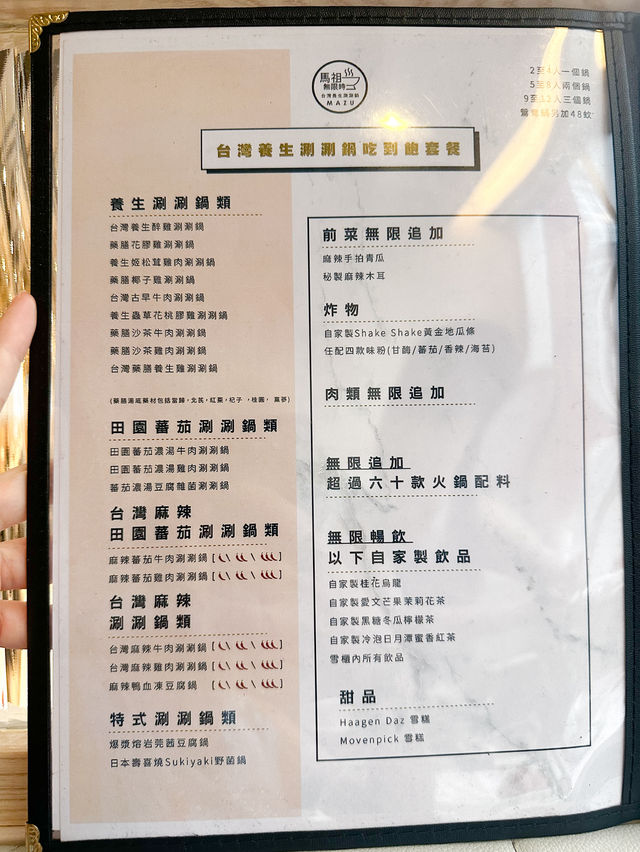 馬祖
無限時
台灣養生涮涮鍋
MAZU
2至4人一個鍋
5至8人兩個鍋
9至12人三個鍋
鴛鴦鍋另加48蚊
台灣養生涮涮鍋吃到飽套餐
養生涮涮鍋類
台灣養生醉雞涮涮鍋
藥膳花膠雞涮涮鍋
養生姬松茸雞肉涮涮鍋
藥膳椰子雞涮涮鍋
台灣古早牛肉涮涮鍋
養生蟲草花桃膠雞涮涮鍋
藥膳沙茶牛肉涮涮鍋
藥膳沙茶雞肉涮涮鍋
台灣藥膳養生雞涮涮鍋
(藥膳湯底藥材包括當歸，北芪，紅棗，杞子，桂圓，黨蔘)
田園蕃茄涮涮鍋類
田園蕃茄濃湯牛肉涮涮鍋
田園蕃茄濃湯雞肉涮涮鍋
蕃茄濃湯豆腐雜菌涮涮鍋
台灣麻辣
田園蕃茄涮涮鍋類
麻辣蕃茄牛肉涮涮鍋
麻辣蕃茄雞肉涮涮鍋
台灣麻辣
涮涮鍋類
台灣麻辣牛肉涮涮鍋
台灣麻辣雞肉涮涮鍋
麻辣鴨血凍豆腐鍋
特式涮涮鍋類
爆漿熔岩莞茜豆腐鍋
日本壽喜燒Sukiyaki野菌鍋
前菜無限追加
麻辣手拍青瓜
秘製麻辣木耳
炸物
自家製Shake Shake黃金地瓜條
任配四款味粉(甘酶/蕃茄/香辣/海苔)
肉類無限追加
無限追加
超過六十款火鍋配料
無限暢飲
以下自家製飲品
自家製桂花烏龍
自家製愛文芒果茉莉花茶
自家製黑糖冬瓜檸檬茶
自家製冷泡日月潭蜜香紅茶
雪櫃內所有飲品
甜品
Haagen Daz 雪糕
Movenpick 雪糕